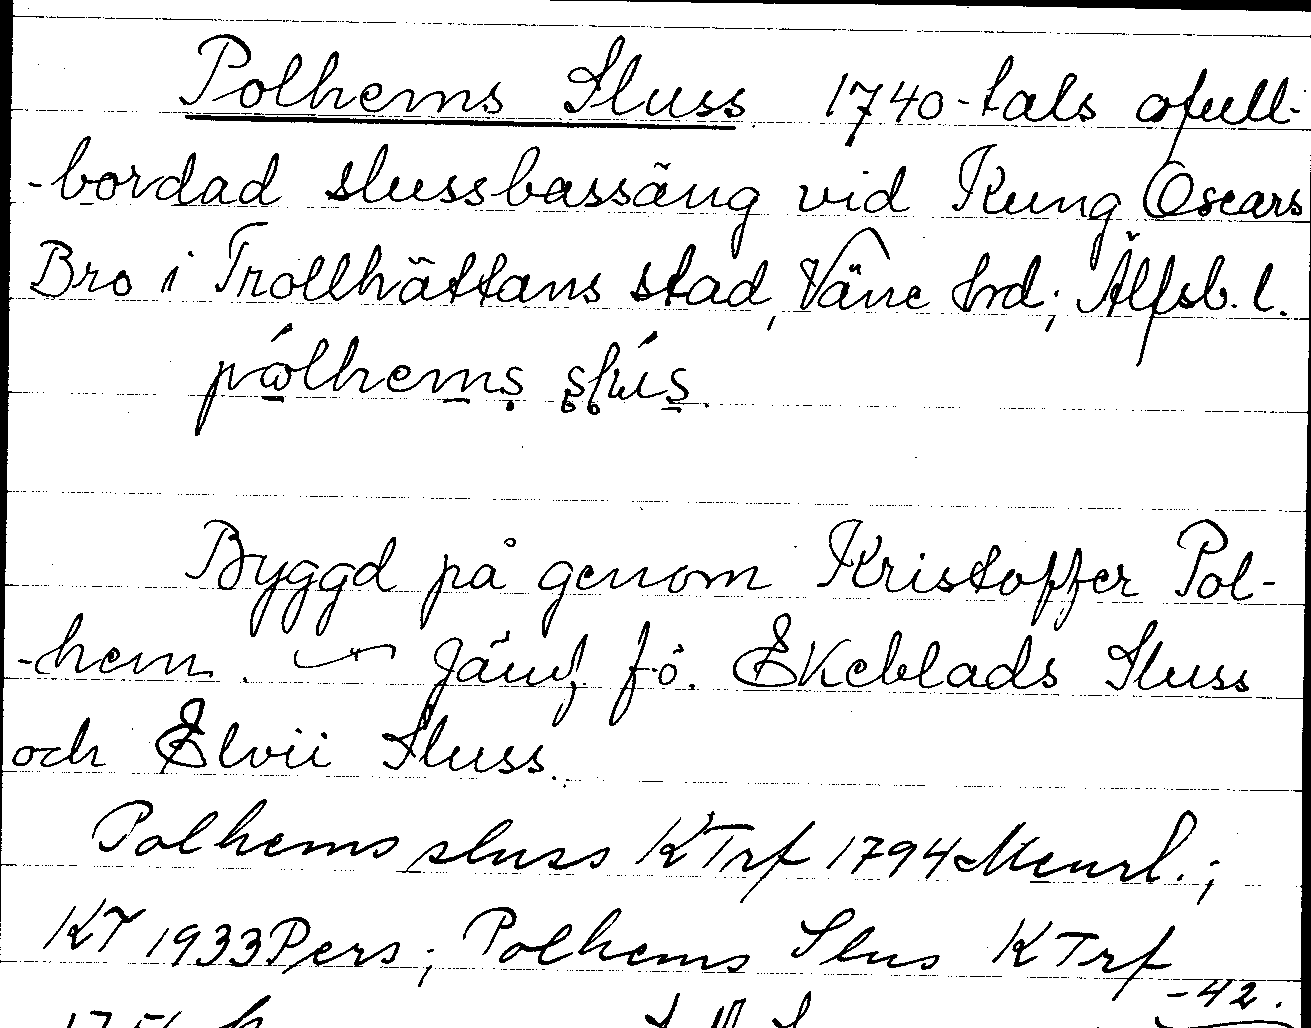 Polhems Sluss 1740-tals ofull-
-bordad slussbassäng vid Kung Oscars
Bro i Trollhättans stad, Väne hrd; Älfsb. l.
pólhems slús.
Byggd på genom Kristoffer Pol-
-hem. — Jämf. fö. Ekeblads Sluss
och Elvii Sluss.
Polhems sluss KTrf 1794 Meurl.;
KT 1933 Pers; Polhems Slus KTrf
-42.